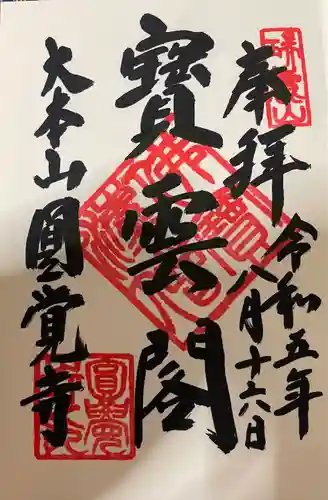 奉拝
令和五年
八月十六日
寶雲閣
大本山圓覚寺